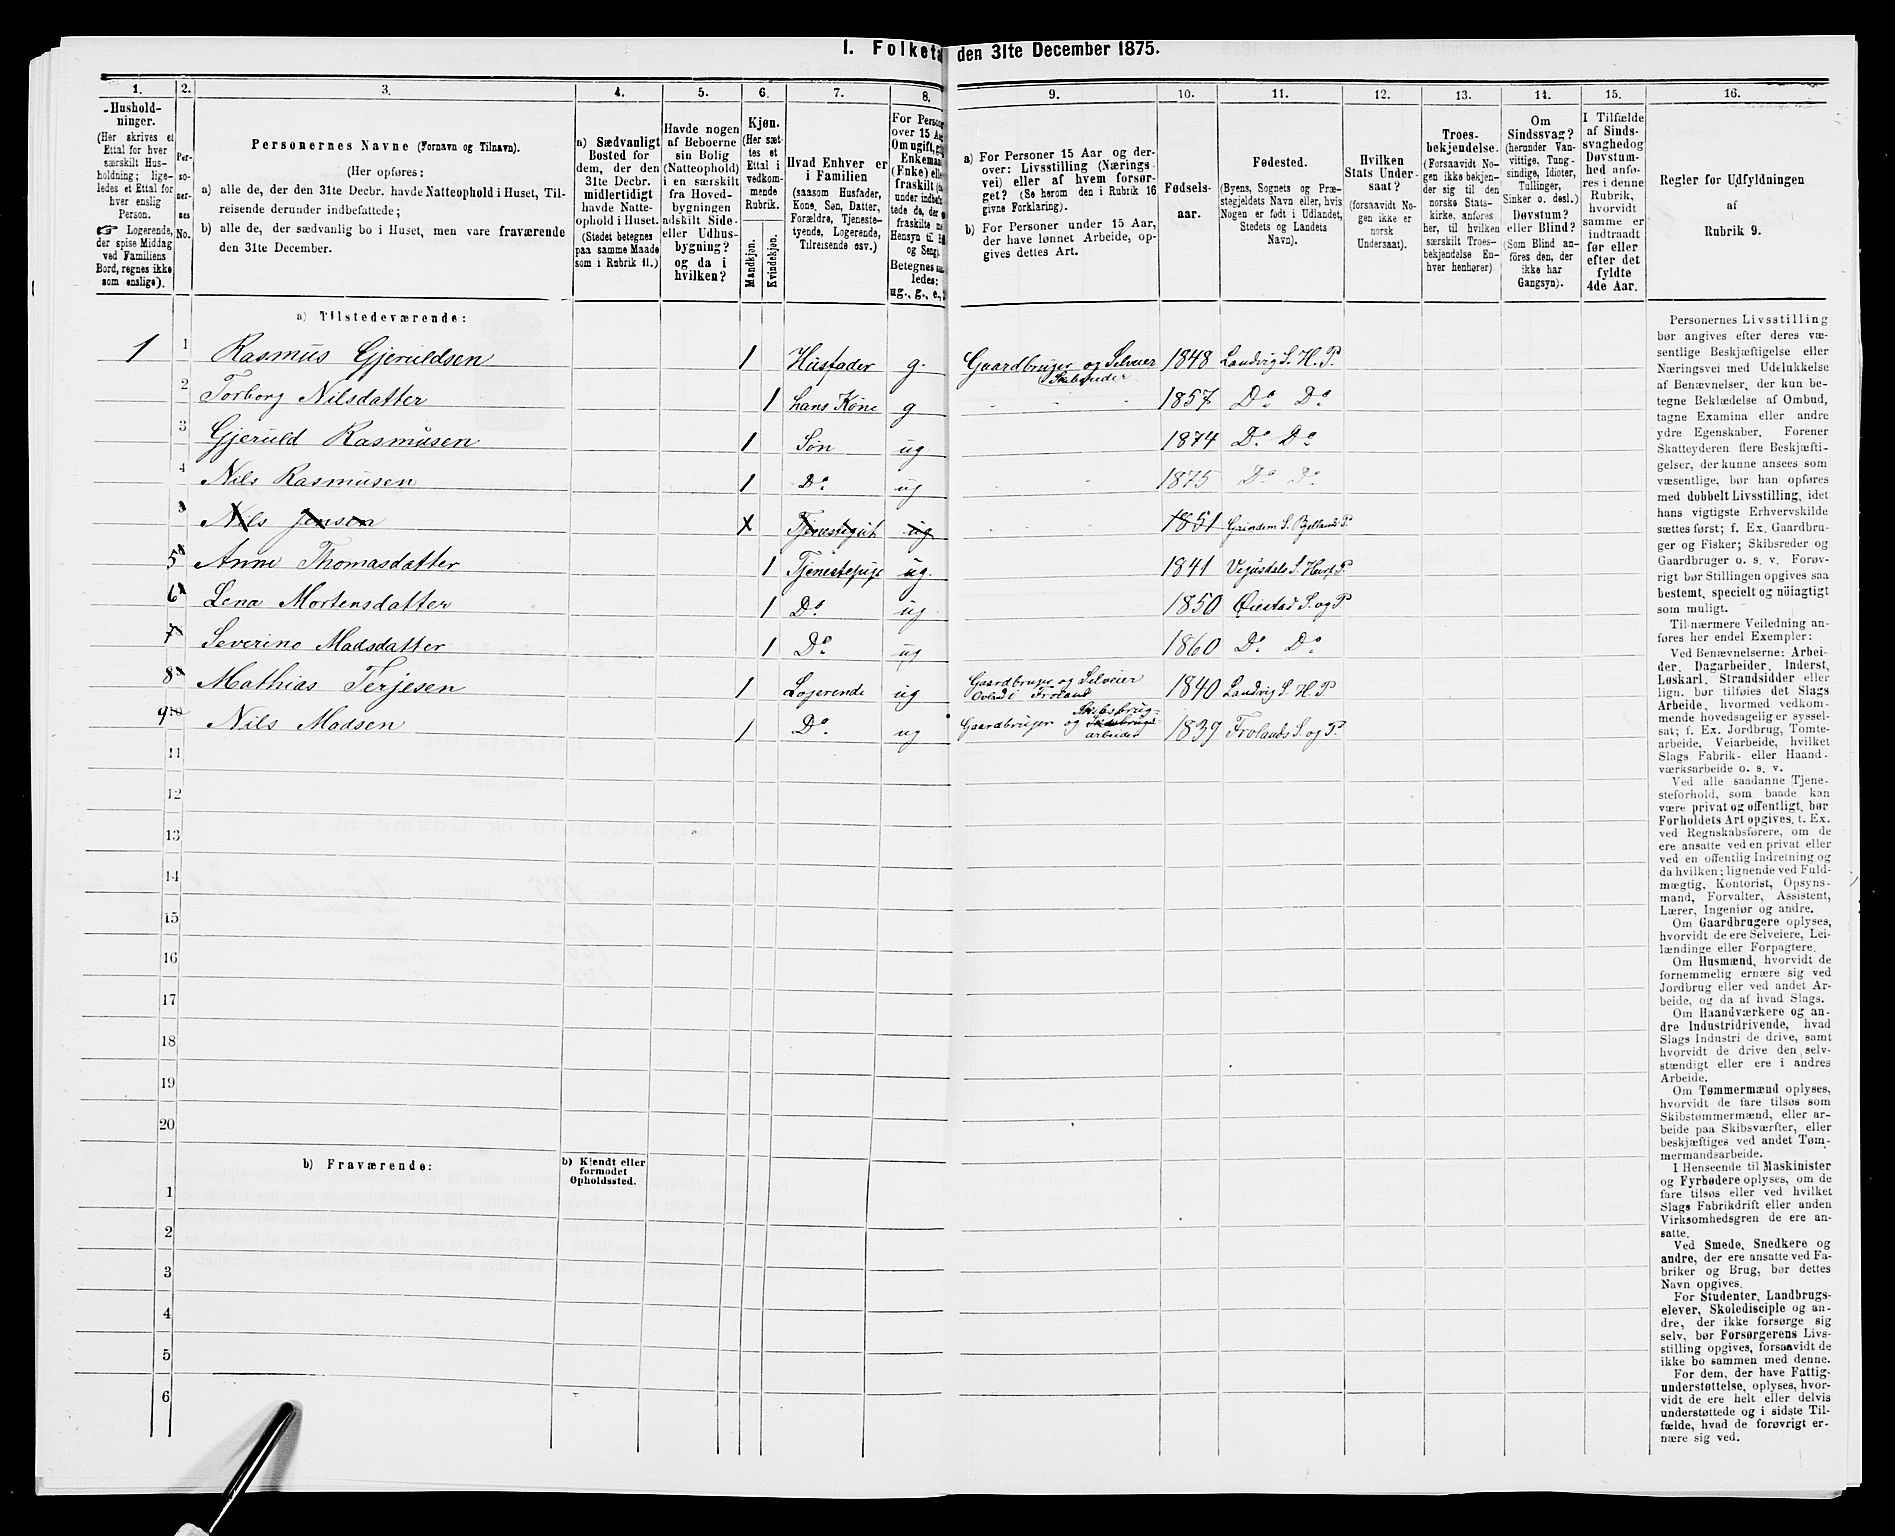 1. Folketæ den 31te December 1875.
1. 2. 3. 4. 5. 6. 7. 8. 9. 10. 11. 12. 13. 14. 15. 16.
Hushold-
ninger.
(Her skrives et
Ettal for hver
særskilt Hus-
holdning; lige-
ledes et Ettal for
hver enslig
Person.
☞ Logerende,
der spise Middag
ved Familiens
Bord, regnes ikke
som enslige).
Per-
so-
ner-
nes
No.
Personernes Navne (Fornavn og Tilnavn).
(Her opføres:
a) alle de, der den 31te Decbr. havde Natteophold i Huset, Til-
reisende derunder indbefattede;
b) alle de, der sædvanlig bo i Huset, men vare fraværende
den 31te December.
a) Sædvanligt
Bosted for
dem, der den
31te Decbr.
midlertidigt
havde Natte-
ophold i Huset.
(Stedet betegnes
paa samme Maade
som i Rubrik 11.)
Havde nogen
af Beboerne
sin Bolig
(Natteophold)
i en særskilt
fra Hoved-
bygningen
adskilt Side-
eller Udhus-
bygning?
og da i
hvilken?
Kjøn.
(Her sæt-
tes et
Ettal i
vedkom-
mende
Rubrik.
Mandkjøn.
Kvindekjøn.
Hvad Enhver er
i Familien
(saasom Husfader,
Kone, Søn, Datter,
Forældre, Tjeneste-
tyende, Logerende,
Tilreisende osv.)
For Persone
over 15 Aa
Om ugift, g
Enkeman
(Enke) elle
fraskilt
under indbe
tede de, d
fraskilte
Hensyn til
og Seng)
Betegnes
ledes:
ug., g., e.,
a) For Personer 15 Aar og der-
over: Livsstilling (Nærings-
vei) eller af hvem forsør-
get? (Se herom den i Rubrik 16
givne Forklaring).
b) For Personer under 15 Aar,
der have lønnet Arbeide, op-
gives dettes Art.
Fødsels-
aar.
Fødested.
(Byens, Sognets og Præ-
stegjeldets Navn eller, hvis
Nogen er født i Udlandet,
Stedets og Landets
Navn).
Hvilken
Stats Under-
saat?
(forsaavidt No-
gen ikke er
norsk
Undersaat).
Troes-
bekjendelse.
(Forsaavidt No-
gen ikke bekjen-
der sig til den
norske Stats-
kirke, anføres
her, til hvilken
særskilt Troes-
bekjendelse En-
hver henhører)
Om
Sindssvag?
(herunder Van-
vittige, Tung-
sindige, Idioter,
Tullinger,
Sinker o. desl.)
Døvstum?
eller Blind?
(Som Blind an-
føres den, der
ikke har
Gangsyn).
I Tilfælde
af Sinds-
svaghed og
Døvstum-
hed anfø-
res i denne
Rubrik,
hvorvidt
samme er
indtraadt
før eller
efter det
fyldte
4de Aar.
Regler for Udfyldningen
af
Rubrik 9.
a) Tilstedeværende:
1 1 Rasmus Gjeruldsen 1 Husfader g. Gaardbruger og Selveier Skibsreder 1848 Landvig S. H. P.
2 Torborg Nilsdatter 1 hans Kone g 1857 Do Do
3 Gjeruld Rasmusen 1 Søn ug 1874 Do Do
4 Nils Rasmusen 1 Do ug 1875 Do Do
Nils Jensen Tjenestegut ug 1851 Grindem S. Bjelland P.
5 Anne Thomasdatter 1 Tjenestepige ug. 1841 Vegusdals S. Herf. P.
6 Lena Mortensdatter 1 Do ug. 1850 Øiestad S. og P.
7 Severine Madsdatter 1 Do ug 1860 Do Do
8 Mathias Terjesen 1 Logerende ug Gaardbruger og Selveier i Froland 1840 Landvig S. H. P
9 Nils Madsen 1 Do. ug Gaardbruger og Skibsbrug- arbeider 1839 Frolands S. og P.
11
12
13
14
15
16
17
18
19
20
b) Fraværende:
b) Kjendt eller
formodet
Opholdssted.
1
2
3
4
5
6
Personernes Livsstilling
bør angives efter deres væ-
sentlige Beskjæftigelse eller
Næringsvei med Udelukkelse
af Benævnelser, der kun be-
tegne Beklædelse af Ombud,
tagne Examina eller andre
ydre Egenskaber. Forener
Skatteyderen flere Beskjæfti-
gelser, der kunne ansees som
væsentlige, bør han opføres
med dobbelt Livsstilling, idet
hans vigtigste Erhvervskilde
sættes først; f. Ex. Gaardbru-
ger og Fisker; Skibsreder og
Gaardbruger o. s. v. Forøv-
rigt bør Stillingen opgives saa
bestemt, specielt og nöiagtigt
som muligt.
Til nærmere Veiledning an-
føres her endel Exempler:
Ved Benævnelserne: Arbei-
der, Dagarbeider, Inderst,
Løskarl, Strandsidder eller
lign. bør tilføies det Slags
Arbeide, hvormed vedkom-
mende hovedsagelig er syssel-
sat; f. Ex. Jordbrug, Tomte-
arbeide, Veiarbeide, hvilket
Slags Fabrik- eller Haand-
værksarbeide o. s. v.
Ved alle saadanne Tjene-
steforhold, som baade kan
være privat og offentligt, bør
Forholdets Art opgives, t. Ex.
ved Regnskabsførere, om de
ere ansatte ved en privat eller
ved en offentlig Indretning og
da hvilken; lignende ved Fuld-
mægtig, Kontorist, Opsyns-
mand, Forvalter, Assistent,
Lærer, Ingeniør og andre.
Om Gaardbrugere oplyses,
hvorvidt de ere Selveiere, Lei-
lændinge eller Forpagtere.
Om Husmænd, hvorvidt de
fornemmelig ernære sig ved
Jordbrug eller ved andet Ar-
beide, og da af hvad Slags.
Om Haandværkere og an-
dre Industridrivende, hvad
Slags Industri de drive, samt
hvorvidt de drive den selv-
stændigt eller ere i andres
Arbeide.
Om Tømmermænd oplyses,
hvorvidt de fare tilsøs som
Skibstømmermænd, eller ar-
beide paa Skibsværfter, eller
beskjæftiges ved andet Tøm-
mermandsarbeide.
I Henseende til Maskinister
og Fyrbødere oplyses, om de
fare tilsøs eller ved hvilket
Slags Fabrikdrift eller anden
Virksomhedsgren de ere an-
satte.
Ved Smede, Snedkere og
andre, der ere ansatte ved Fa-
briker og Brug, bør dettes
Navn opgives.
For Studenter, Landbrugs-
elever, Skoledisciple og an-
dre, der ikke forsørge sig
selv, bør Forsørgerens Livs-
stilling opgives, forsaavidt de
ikke bo sammen med denne.
For dem, der have Fattig-
understøttelse, oplyses, hvor-
vidt de ere helt eller delvis
understøttede og i sidste Til-
fælde, hvad de forøvrigt er-
nære sig ved.